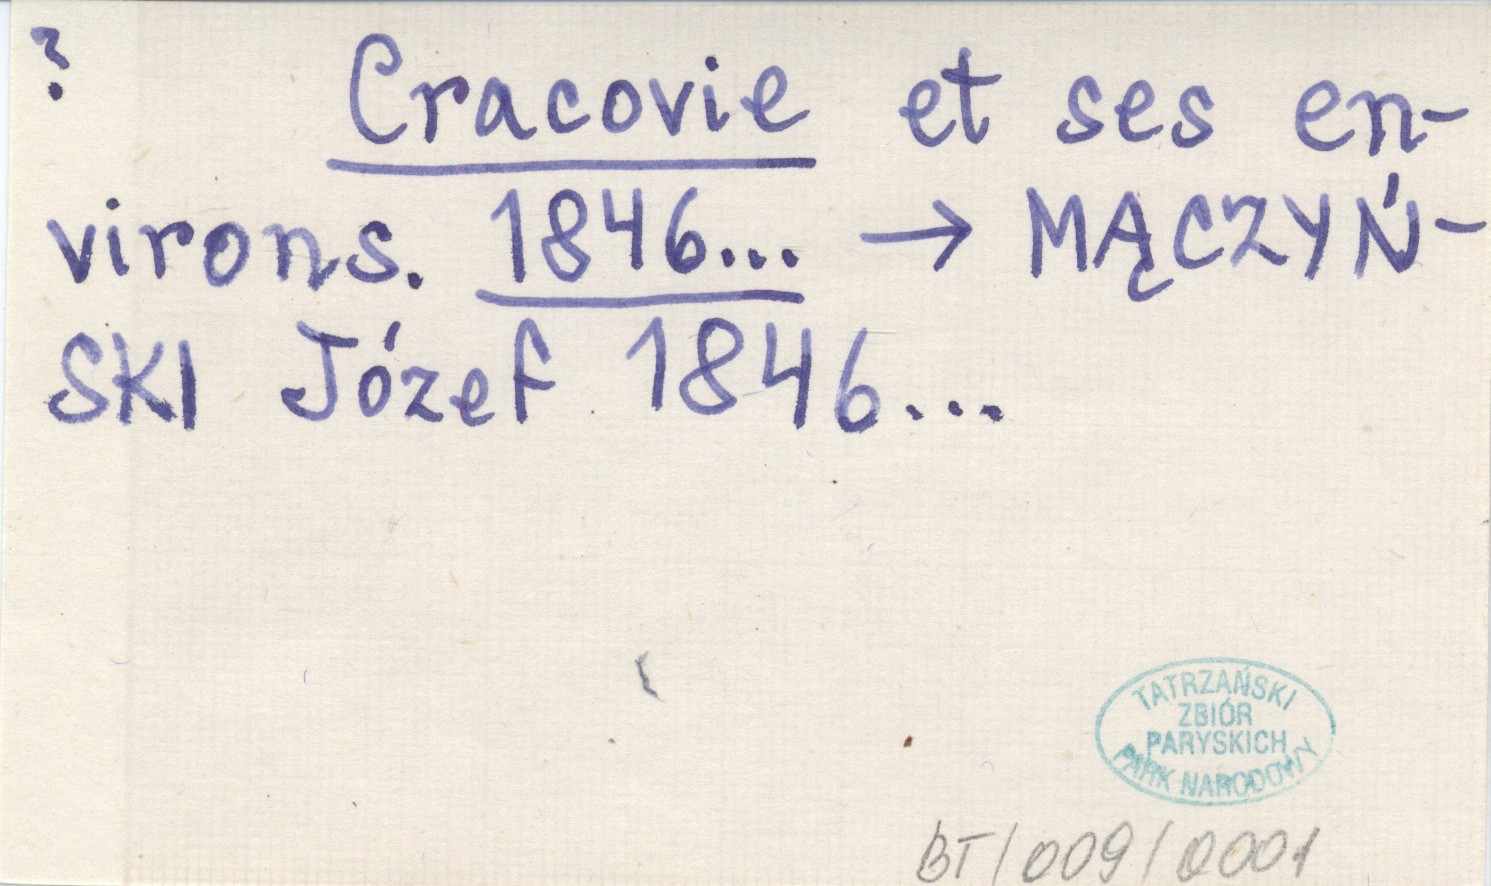 ?
Cracovie et ses en-
virons. 1846... → MĄCZYŃ-
SKI Józef 1846...
TATRZAŃSKI
ZBIÓR
PARYSKICH
PARK NARODOWY
BT/009/0001